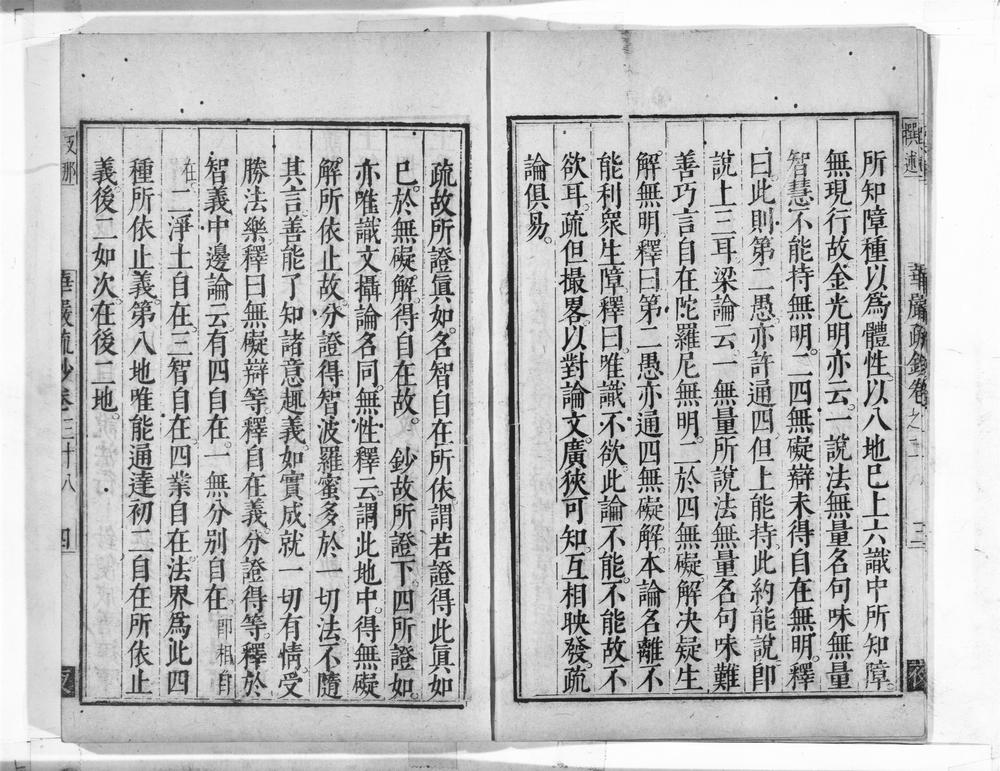 所知障種以爲體性以八地已上六識中所知障。
無現行故金光明亦云。一說法無量名句味無量
智慧不能持無明。二四無礙辯未得自在無明。釋
曰此則第二愚亦許通四但上能持。此約能說。卽
說上三耳。梁論云一無量所說法無量名句味難
善巧言自在陀羅尼無明。二於四無礙解決疑生
解無明。釋曰。第二愚亦通四無礙解。本論名離不
能利衆生障釋曰。唯識不欲此論不能。不能故不
欲耳。疏但撮畧。以對論文。廣狹可知。互相映發。疏
論俱易。
疏故所證眞如。名智自在所依。謂若證得此眞如
已。於無礙解。得自在故。 鈔故所證下。四所證如。
亦唯識文攝論名同。無性釋云。謂此地中。得無礙
解所依止故。分證得智波羅蜜多。於一切法。不隨
其言善能了知諸意趣義。如實成就一切有情。受
勝法樂。釋曰。無礙辯等。釋自在義。分證得等。釋於
智義中邊論云有四自在。一無分別自在 卽相自
在。二淨土自在。三智自在。四業自在。法界爲此四
種所依止義。第八地唯能通達初二自在所依止
義。後二如次。在後二地。
撰述
華嚴疏鈔卷
三
華嚴疏鈔卷三十八
四